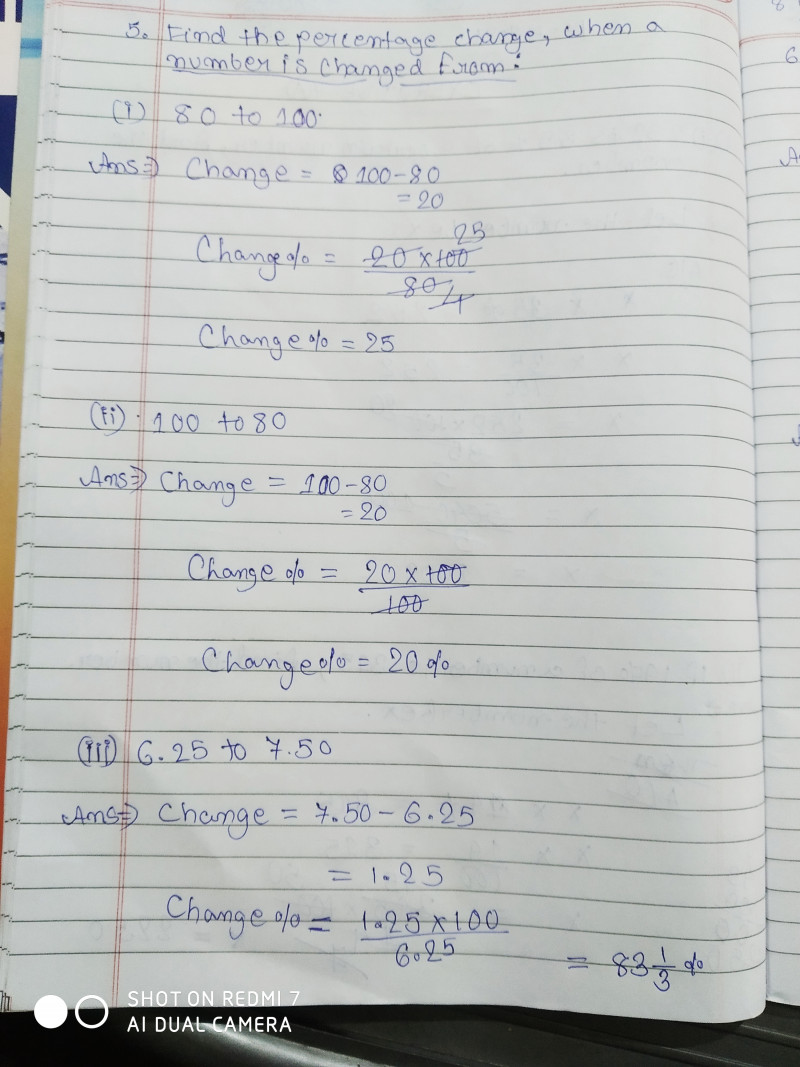 5. Find the percentage change, when a
number is changed from:
(i) 80 to 100.
Ans⇒ Change = 100-80
= 20
25
Change% = 20 x 100
80 4
Change% = 25
(ii) 100 to 80
Ans⇒ Change = 100-80
= 20
Change % = 20 x 100
100
Change% = 20%
(iii) 6.25 to 7.50
Ans⇒ Change = 7.50 - 6.25
= 1.25
Change % = 1.25 x 100
6.25
= 83 1/3 %
SHOT ON REDMI 7
AI DUAL CAMERA